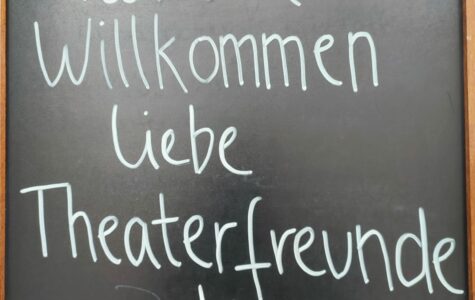 Willkommen
liebe
Theaterfreunde